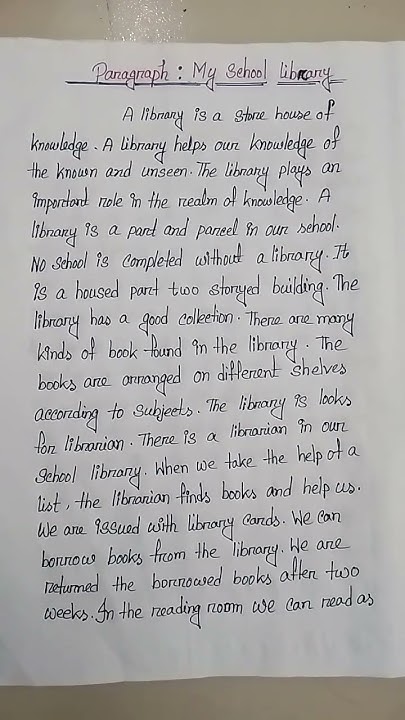 Paragraph : My School library
A library is a store house of
knowledge. A library helps our knowledge of
the known and unseen. The library plays an
important role in the realm of knowledge. A
library is a part and parcel in our school.
No school is completed without a library. It
is a housed part two storyed building. The
library has a good collection. There are many
kinds of book found in the library. The
books are arranged on different shelves
according to subjects. The library is looks
for librarian. There is a librarian in our
school library. When we take the help of a
list, the librarian finds books and help us.
We are issued with library cards. We can
borrow books from the library. We are
returned the borrowed books after two
weeks. In the reading room we can read as